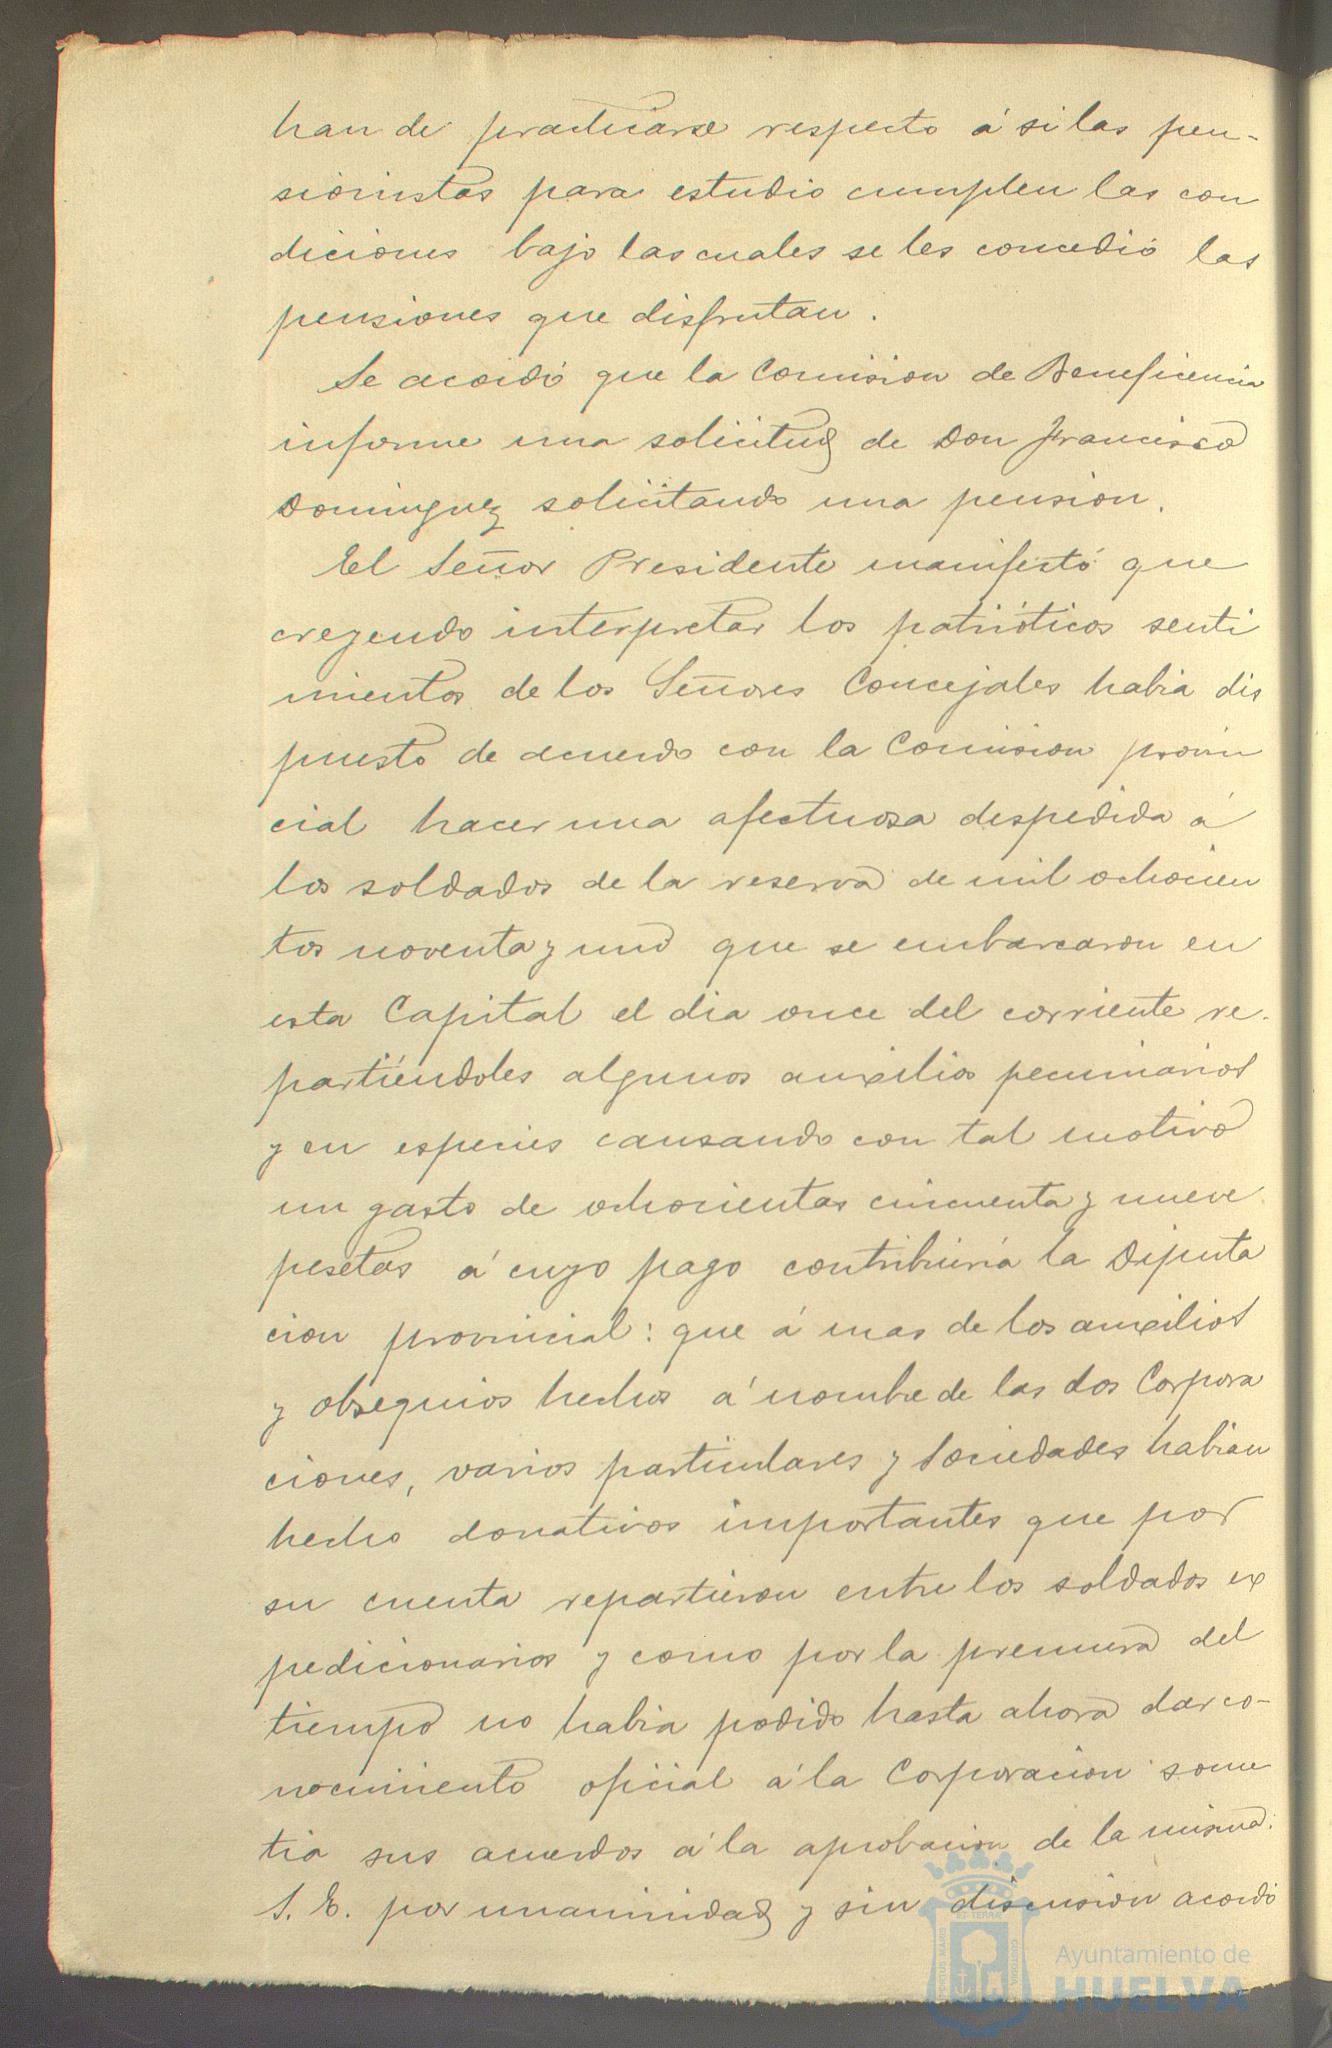 han de practicarse respecto á si las pen-
sionistas para estudio cumplen las con
diciones bajo las cuales se les concedió las
pensiones que disfrutan.
Se acordó que la Comision de Beneficencia
informe una solicitud de Don Francisco
Dominguez solicitando una pension.
El Señor Presidente manifestó que
creyendo interpretar los patrióticos senti
mientos de los Señores Concejales habia dis
puesto de acuerdo con la Comision provin
cial hacer una afectuosa despedida á
los soldados de la reserva de mil ochocien
tos noventa y uno que se embarcaron en
esta Capital el dia once del corriente re-
partiéndoles algunos auxilios pecuniarios
y en especies causando con tal motivo
un gasto de ochocientas cincuenta y nueve
pesetas á cuyo pago contribuiria la Diputa
cion provincial: que á mas de los auxilios
y obsequios hechos á nombre de las dos Corpora
ciones, varios particulares y Sociedades habian
hecho donativos importantes que por
su cuenta repartieron entre los soldados ex
pedicionarios y como por la premura del
tiempo no habia podido hasta ahora dar co-
nocimiento oficial á la Corporacion some
tia sus acuerdos á la aprobacion de la misma.
S. E. por unanimidad y sin discusion acordó
PORTUS MARIS
ET TERRÆ
CUSTODIA
Ayuntamiento de
HUELVA